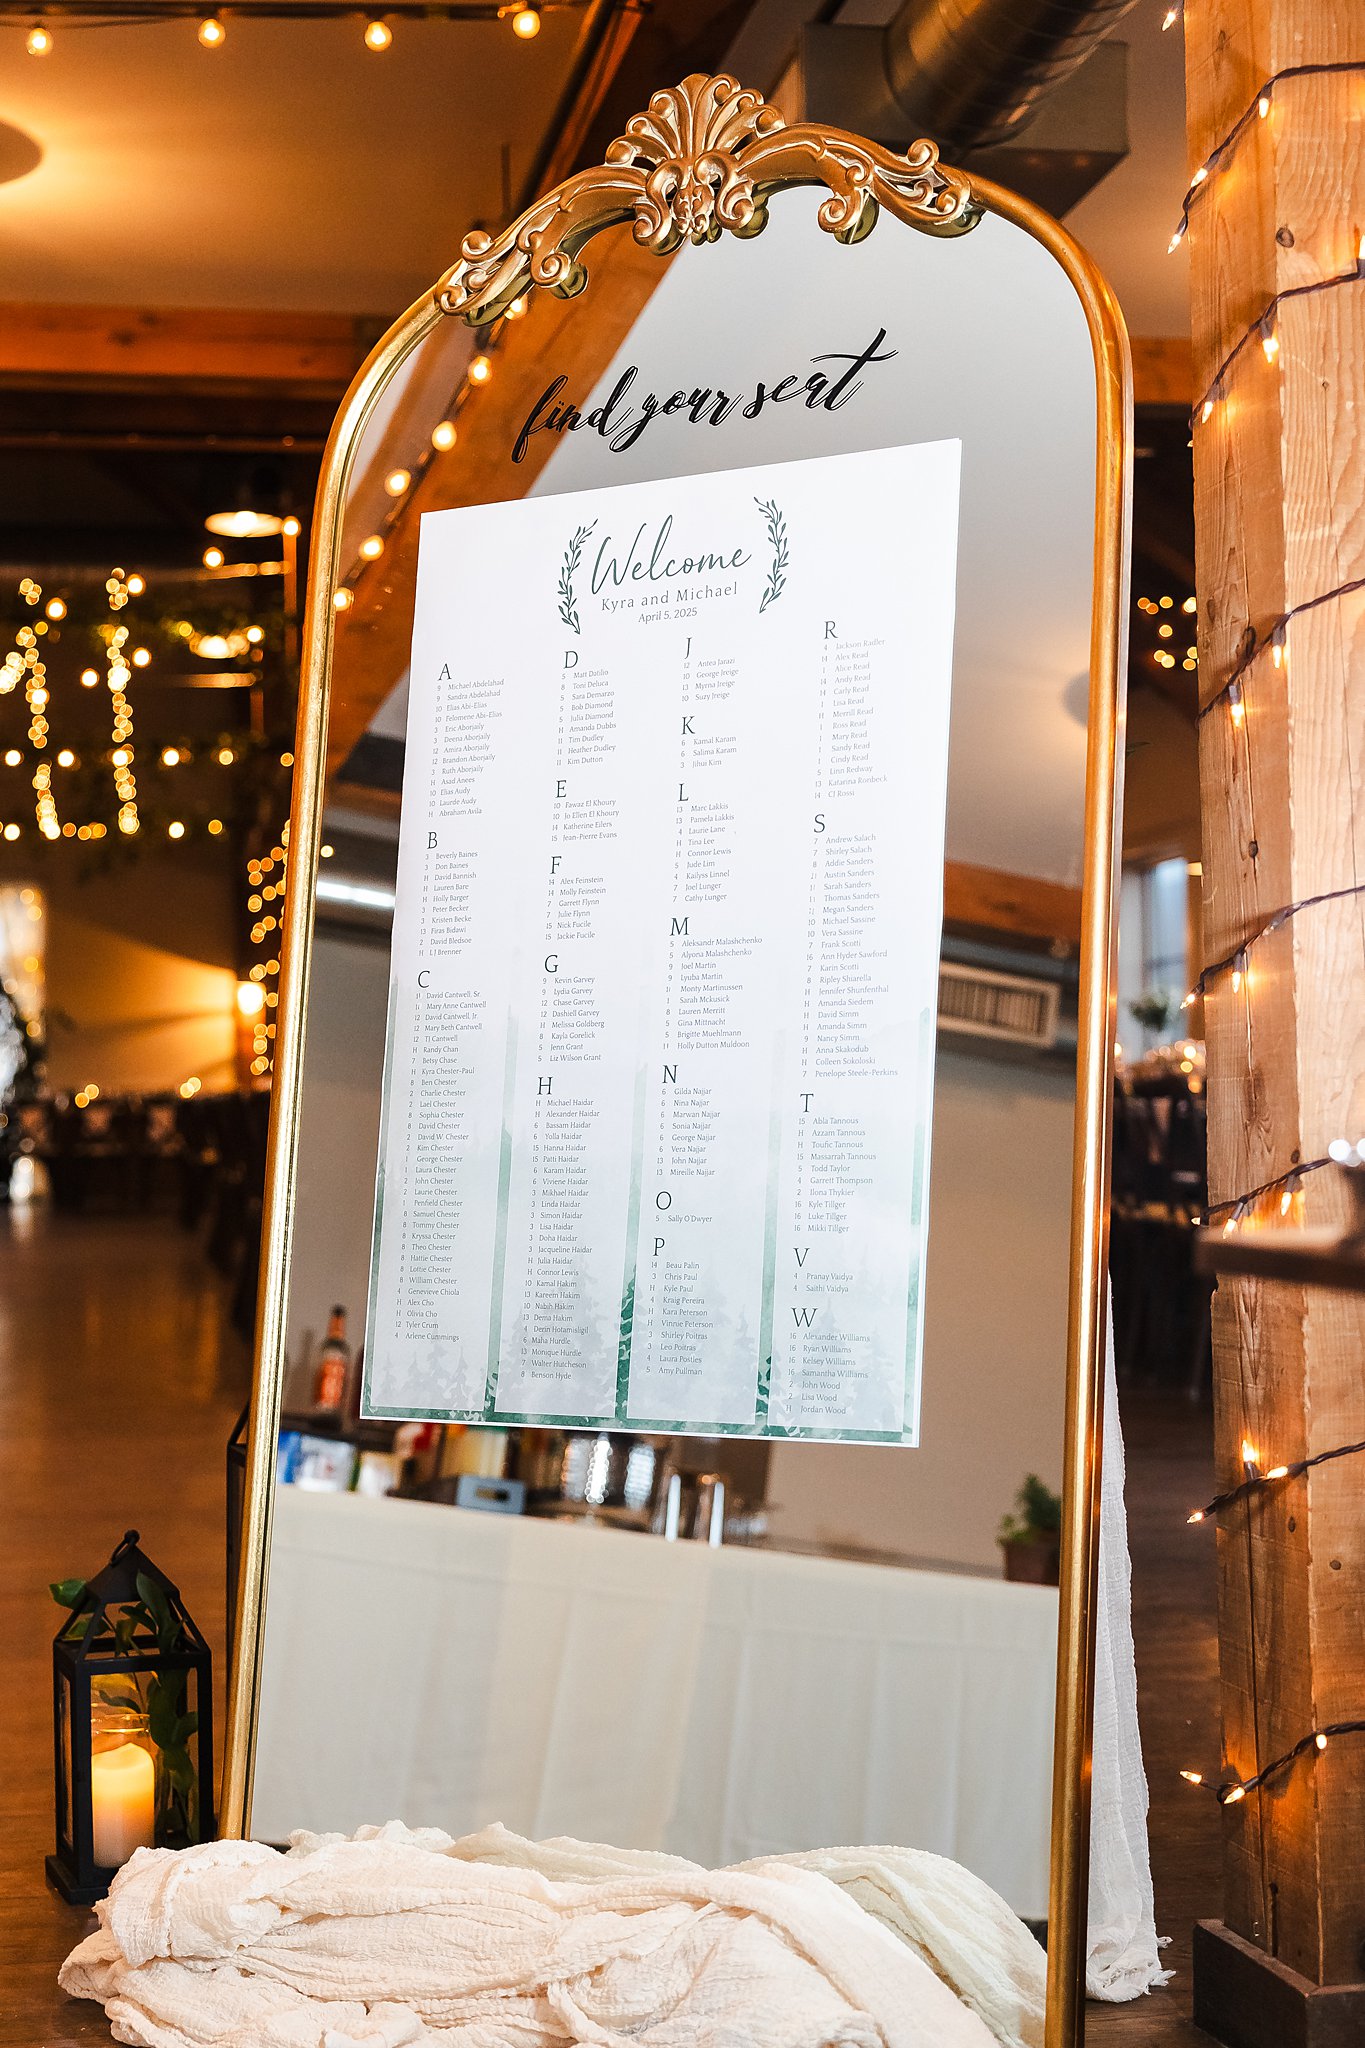 find your seat
Welcome
Kyra and Michael
April 5, 2025
A
9 Michael Abdelahad
9 Sandra Abdelahad
10 Elias Abi-Elias
10 Felomene Abi-Elias
3 Eric Aborjaily
3 Deena Aborjaily
12 Amira Aborjaily
12 Brandon Aborjaily
3 Ruth Aborjaily
H Asad Anees
10 Elias Audy
10 Laurde Audy
H Abraham Avila
B
3 Beverly Baines
3 Don Baines
H David Bannish
H Lauren Bare
H Holly Barger
3 Peter Becker
3 Kristen Becke
13 Firas Bidawi
2 David Bledsoe
H LJ Brenner
C
11 David Cantwell, Sr.
11 Mary Anne Cantwell
12 David Cantwell, Jr.
12 Mary Beth Cantwell
12 TJ Cantwell
H Randy Chan
7 Betsy Chase
H Kyra Chester-Paul
8 Ben Chester
2 Charlie Chester
2 Lael Chester
8 Sophia Chester
8 David Chester
2 David W. Chester
2 Kim Chester
1 George Chester
1 Laura Chester
2 John Chester
2 Laurie Chester
1 Penfield Chester
8 Samuel Chester
8 Tommy Chester
8 Kryssa Chester
8 Theo Chester
8 Hattie Chester
8 Lottie Chester
8 William Chester
4 Genevieve Chiola
H Alex Cho
H Olivia Cho
12 Tyler Crum
4 Arlene Cummings
D
5 Matt Datilio
8 Toni Deluca
5 Sara Demarzo
5 Bob Diamond
5 Julia Diamond
H Amanda Dubbs
11 Tim Dudley
11 Heather Dudley
11 Kim Dutton
E
10 Fawaz El Khoury
10 Jo Ellen El Khoury
14 Katherine Eilers
15 Jean-Pierre Evans
F
14 Alex Feinstein
14 Molly Feinstein
7 Garrett Flynn
7 Julie Flynn
15 Nick Fucile
15 Jackie Fucile
G
9 Kevin Garvey
9 Lydia Garvey
12 Chase Garvey
12 Dashiell Garvey
H Melissa Goldberg
8 Kayla Gorelick
5 Jenn Grant
5 Liz Wilson Grant
H
H Michael Haidar
H Alexander Haidar
6 Bassam Haidar
6 Yolla Haidar
15 Hanna Haidar
15 Patti Haidar
6 Karam Haidar
6 Viviene Haidar
3 Mikhael Haidar
3 Linda Haidar
3 Simon Haidar
3 Lisa Haidar
3 Doha Haidar
3 Jacqueline Haidar
H Julia Haidar
H Connor Lewis
10 Kamal Hakim
13 Kareem Hakim
10 Nabih Hakim
13 Dema Hakim
4 Derin Hotamisligil
6 Maha Hurdle
13 Monique Hurdle
7 Walter Hutcheson
8 Benson Hyde
J
12 Antea Jarazi
10 George Jreige
13 Myrna Jreige
10 Suzy Jreige
K
6 Kamal Karam
6 Salima Karam
3 Jihui Kim
L
13 Marc Lakkis
13 Pamela Lakkis
4 Laurie Lane
H Tina Lee
H Connor Lewis
5 Jude Lim
4 Kailyss Linnel
7 Joel Lunger
7 Cathy Lunger
M
5 Aleksandr Malashchenko
5 Alyona Malashchenko
9 Joel Martin
9 Lyuba Martin
11 Monty Martinussen
1 Sarah Mckusick
8 Lauren Merritt
5 Gina Mittnacht
5 Brigitte Muehlmann
11 Holly Dutton Muldoon
N
6 Gilda Najjar
6 Nina Najjar
6 Marwan Najjar
6 Sonia Najjar
6 George Najjar
6 Vera Najjar
13 John Najjar
13 Mireille Najjar
O
5 Sally O'Dwyer
P
14 Beau Palin
3 Chris Paul
H Kyle Paul
4 Kraig Pereira
H Kara Peterson
H Vinnie Peterson
3 Shirley Poitras
3 Leo Poitras
4 Laura Postles
5 Amy Pullman
R
4 Jackson Radler
14 Alex Read
1 Alice Read
14 Andy Read
H Carly Read
1 Lisa Read
H Merrill Read
1 Ross Read
1 Mary Read
1 Sandy Read
1 Cindy Read
5 Linn Redway
13 Katarina Ronbeck
14 CJ Rossi
S
7 Andrew Salach
7 Shirley Salach
8 Addie Sanders
11 Austin Sanders
11 Sarah Sanders
11 Thomas Sanders
11 Megan Sanders
10 Michael Sassine
10 Vera Sassine
7 Frank Scotti
16 Ann Hyder Sawford
7 Karin Scotti
8 Ripley Shiarella
H Jennifer Shunfenthal
H Amanda Siedem
H David Simm
H Amanda Simm
9 Nancy Simm
H Anna Skakodub
H Colleen Sokoloski
7 Penelope Steele-Perkins
T
15 Abla Tannous
H Azzam Tannous
H Toufic Tannous
15 Massarrah Tannous
5 Todd Taylor
4 Garrett Thompson
2 Ilona Thykier
16 Kyle Tillger
16 Luke Tillger
16 Mikki Tillger
V
4 Pranay Vaidya
4 Saithi Vaidya
W
16 Alexander Williams
16 Ryan Williams
16 Kelsey Williams
16 Samantha Williams
2 John Wood
2 Lisa Wood
H Jordan Wood